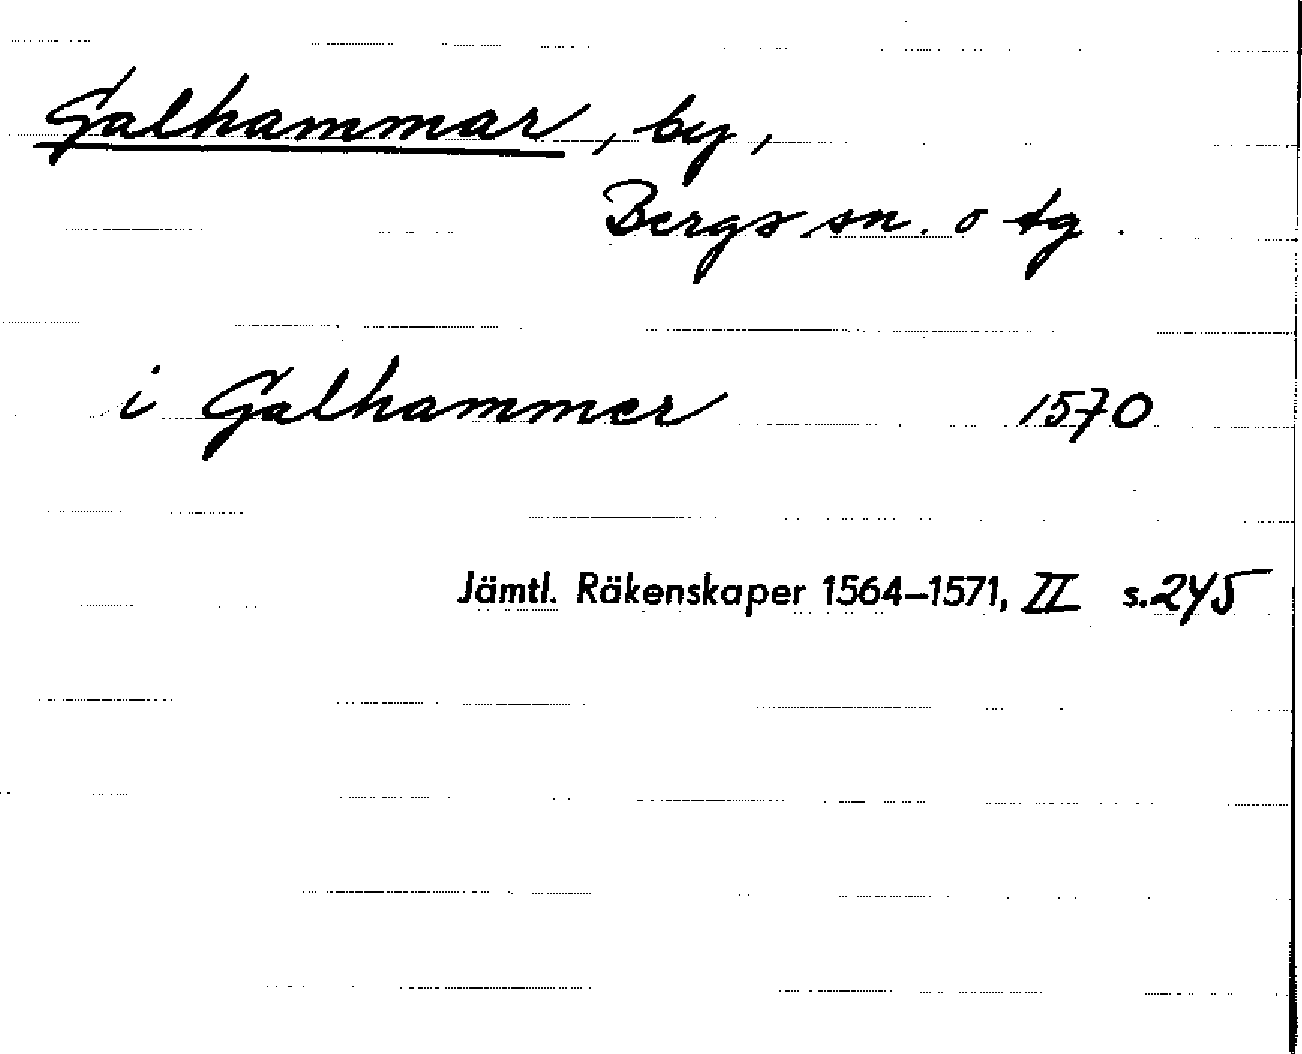 Galhammar, by,
Bergs sn. o tg.
i Galhammer 1570
Jämtl. Räkenskaper 1564–1571, II s. 245